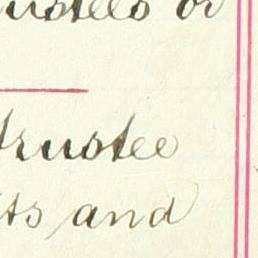 trustees or
trustee
ts and